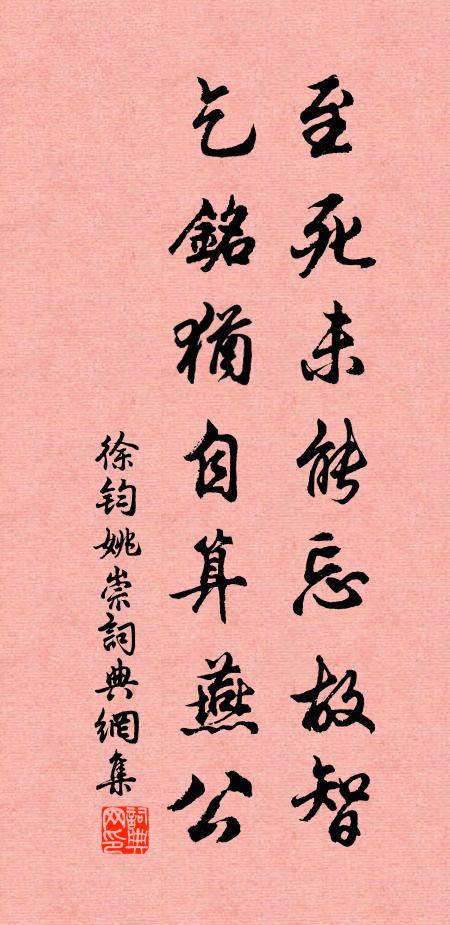 至死未能忘故智
乞銘猶自算燕公
徐鈞姚崇詞典網集
詞典
网印